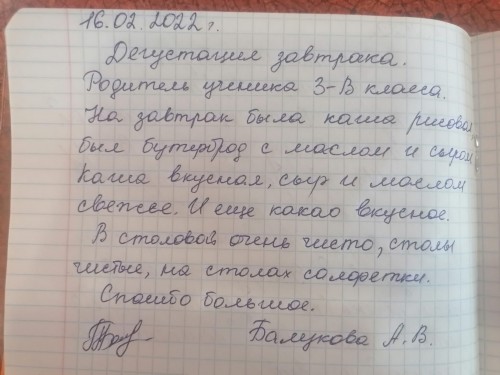 16.02.2022г.
Дегустация завтрака.
Родитель ученика 3-В класса.
На завтрак была каша рисовая
был бутерброд с маслом и сыром
Каша вкусная, сыр и маслом
свежее. И еще какао вкусное.
В столовой очень чисто, столы
чистые, на столах салфетки.
Спасибо большое.
Балукова А.В.